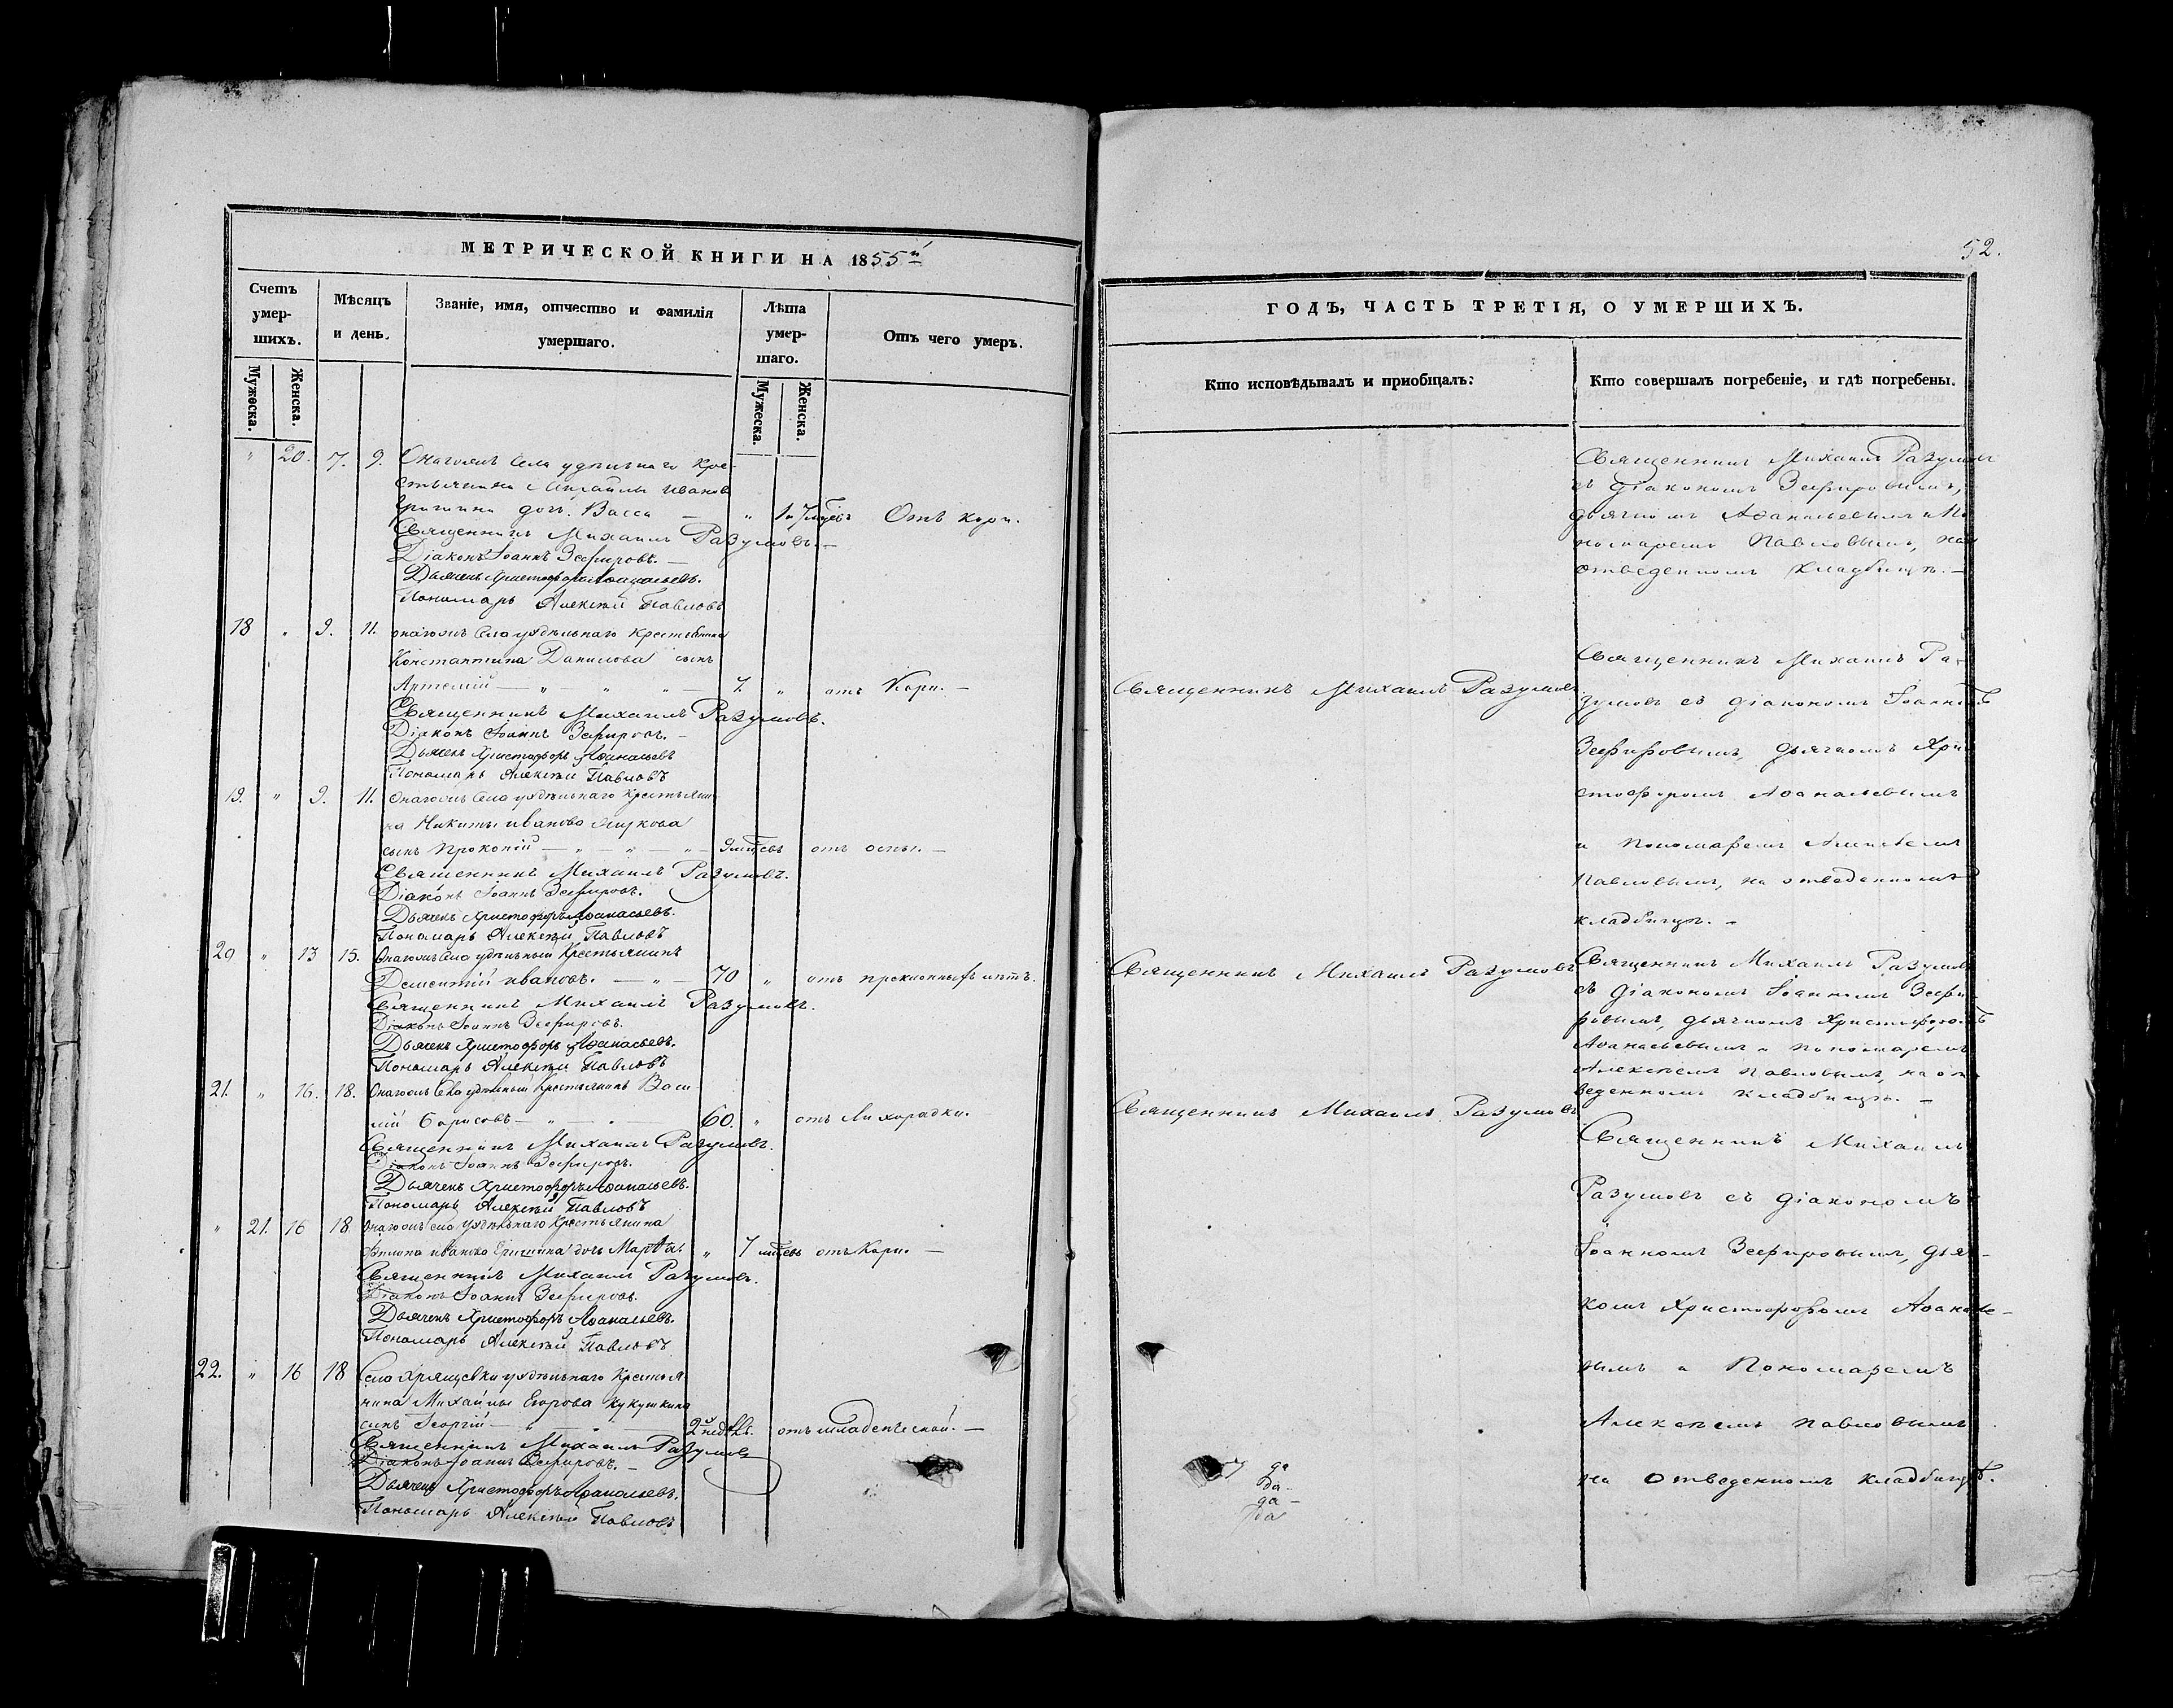 МЕТРИЧЕСКОЙ КНИГИ НА 1855й
Счетъ умер-шихъ.
Мужеска.
Женска.
Мѣсяцъ и день.
Званіе, имя, отчество и фамилія умершаго.
Лѣта умер-шаго.
Мужеска.
Женска.
Отъ чего умеръ.
" 20. 7. 9. Онагожъ Села удѣльнаго Кре-
стьянина Михайлы Иванова
дочь Васса — " Отъ кори.
Священникъ Михаилъ Разумовъ. —
Діаконъ Іоаннъ Зефировъ. —
Дьячекъ Христофоръ Аѳанасьевъ.
Пономарь Алексѣй Павловъ
18 " 9. 11. онагожъ Села удѣльнаго крестьянина
Константина Данилова сынъ
Артемій — " " " — 7. " отъ Кори. —
Священникъ Михаилъ Разумовъ.
Діаконъ Іоаннъ Зефировъ. —
Дьячекъ Христофоръ Аѳанасьевъ
Пономарь Алексѣй Павловъ
19. " 9. 11. Онагожъ Села удѣльнаго Крестьяни
на Никиты Иванова
сынъ Прокопій — " — " — " — 9 мѣсцевъ отъ оспы. —
Священникъ Михаилъ Разумовъ.
Діаконъ Іоаннъ Зефировъ.
Дьячекъ Христофоръ Аѳанасьевъ.
Пономарь Алексѣй Павловъ
20 " 13 15. Онагожъ Села удѣльный Крестьянинъ
Дементій Ивановъ. — " — 70 " отъ преклонныхъ лѣтъ.
Священникъ Михаилъ Разумовъ.
Діаконъ Іоаннъ Зефировъ.
Дьячекъ Христофоръ Аѳанасьевъ.
Пономарь Алексѣй Павловъ
21. " 16. 18. Онагожъ Села удѣльный Крестьянинъ Васи
лій Борисовъ — " — 60. " отъ Лихорадки.
Священникъ Михаилъ Разумовъ.
Діаконъ Іоаннъ Зефировъ.
Дьячекъ Христофоръ Аѳанасьевъ.
Пономарь Алексѣй Павловъ
" 21. 16 18 Онагожъ села удѣльнаго Крестьянина
Филипа Иванова дочь Марѳа. " 7 мѣсцевъ отъ Кори. —
Священникъ Михаилъ Разумовъ.
Діаконъ Іоаннъ Зефировъ.
Дьячекъ Христофоръ Аѳанасьевъ.
Пономарь Алексѣй Павловъ
22. " 16 18 Села Хрящевки удѣльнаго Крестья
нина Михайлы Егорова Кукушкина
сынъ Георгій — 2 недѣль. отъ младенческой. —
Священникъ Михаилъ Разумовъ
Діаконъ Іоаннъ Зефировъ. —
Дьячекъ Христофоръ Аѳанасьевъ.
Пономарь Алексѣй Павловъ
52.
ГОДЪ, ЧАСТЬ ТРЕТІЯ, О УМЕРШИХЪ.
Кто исповѣдывалъ и приобщалъ:
Кто совершалъ погребеніе, и гдѣ погребены.
Священникъ Михаилъ Разумовъ
съ діакономъ Зефировымъ,
дьячкомъ Аѳанасьевымъ и По
номаремъ Павловымъ, на
отведенномъ кладбищѣ. —
Священникъ Михаилъ Разумовъ.
Священникъ Михаилъ Ра-
зумовъ съ діакономъ Іоанномъ
Зефировымъ, дьячкомъ Хри
стофоромъ Аѳанасьевымъ
и Пономаремъ Алексѣемъ
Павловымъ, на отведенномъ
кладбищѣ. —
Священникъ Михаилъ Разумовъ
Священникъ Михаилъ Разумовъ
съ діакономъ Іоанномъ Зефи-
ровымъ, дьячкомъ Христофоромъ
Аѳанасьевымъ и пономаремъ
Алексѣемъ Павловымъ, на от
веденномъ кладбищѣ. —
Священникъ Михаилъ Разумовъ
Священникъ Михаилъ
Разумовъ съ діакономъ
Іоанномъ Зефировымъ, дьяч-
комъ Христофоромъ Аѳанасье-
вымъ и Пономаремъ
Алексѣемъ Павловымъ
на отведенномъ кладбищѣ.
да
да-
да-
да